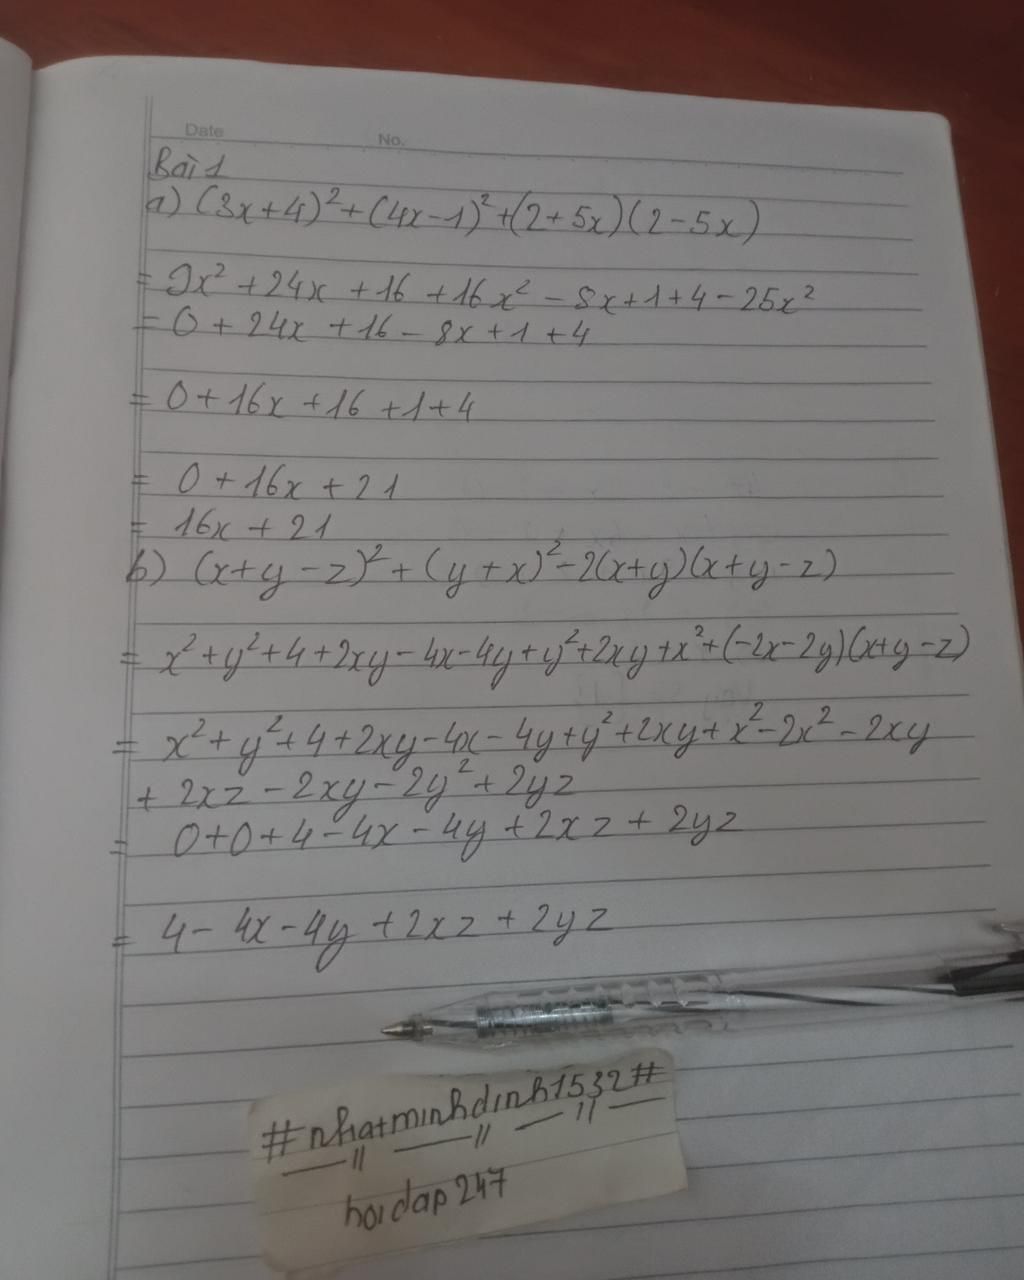 Date No.
Bài 1
a) (3x+4)²+(4x-1)²+(2+5x)(2-5x)
= 9x² +24x +16 +16x² - 8x+1+4-25x²
= 0 + 24x +16 - 8x +1 +4
= 0+16x +16 +1+4
= 0 +16x +21
= 16x + 21
b) (x+y-z)²+(y+x)²-2(x+y)(x+y-z)
= x²+y²+4+2xy-4x-4y+y²+2xy+x²+(-2x-2y)(x+y-z)
= x²+y²+4+2xy-4x-4y+y²+2xy+x²-2x²-2xy
+ 2xz-2xy-2y²+2yz
= 0+0+4-4x-4y+2xz+2yz
= 4-4x-4y+2xz+2yz
#nhatminhdinh1532#
hoidap247